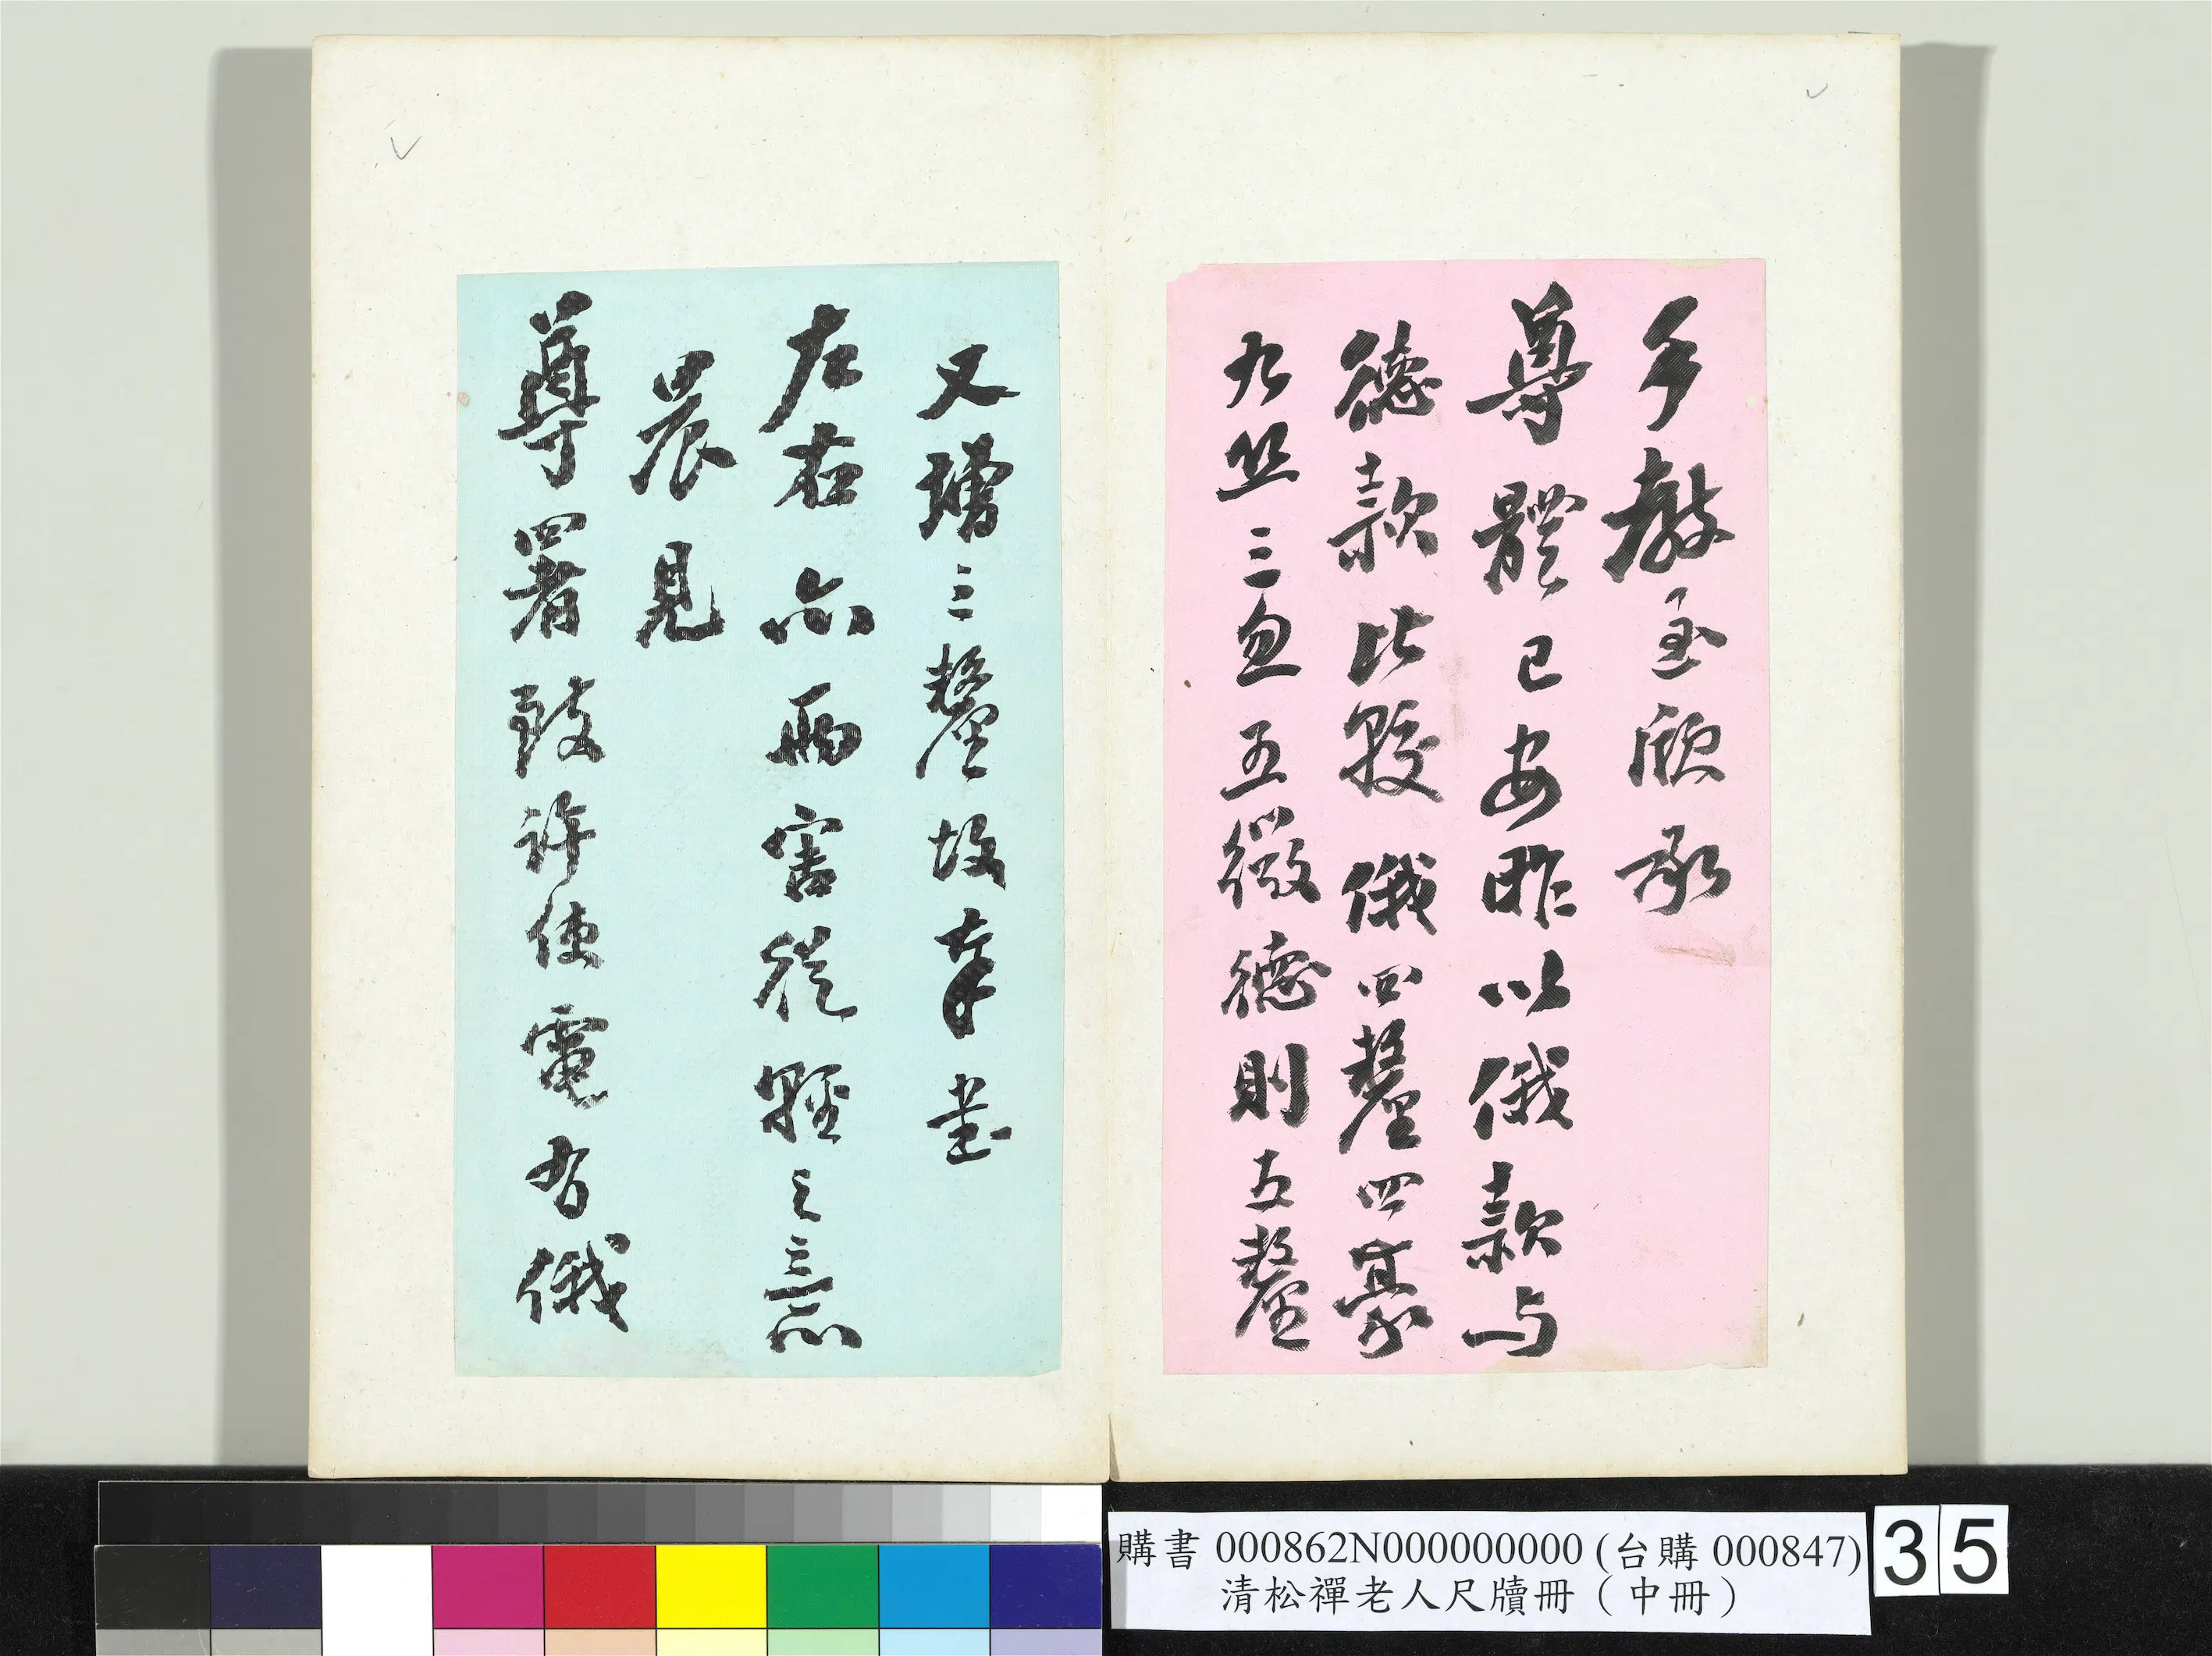 手教至欣承
尊體已安昨以俄款与
德款比較俄四釐四豪
九丝三忽五微德則五釐
又增三釐故奉書
左右亦兩害從輕之意
晨見
尊署致許使電有俄
購書 000862N000000000 (台購 000847)
清松禪老人尺牘冊（中冊）
35